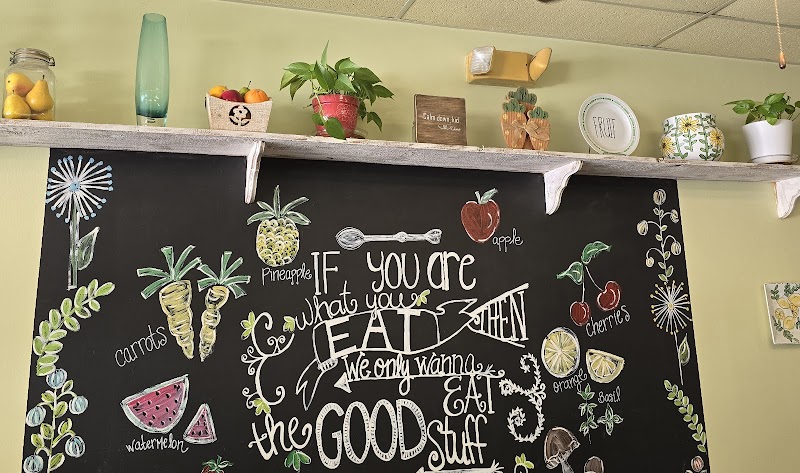 Calm down, kid
FRUIT
pineapple
apple
IF YOU are
what you
EAT THEN
carrots
cherries
We only wanna
EAT
orange
Basil
watermelon
the GOOD stuff